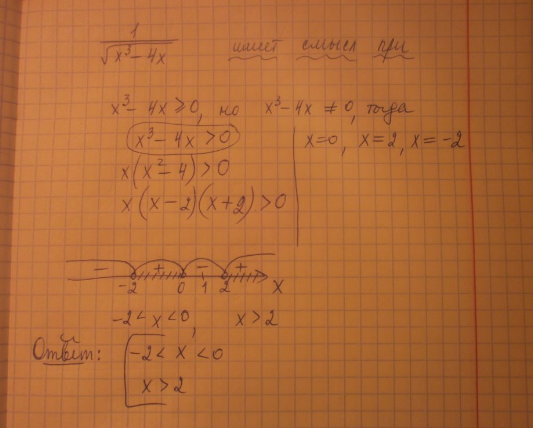 1
√x³ - 4x имеет смысл при
x³ - 4x ≥ 0, но x³ - 4x ≠ 0, тогда
x³ - 4x > 0 x = 0, x = 2, x = -2
x(x² - 4) > 0
x(x - 2)(x + 2) > 0
- + - +
-2 0 1 2 x
-2 < x < 0, x > 2
Ответ: -2 < x < 0
x > 2